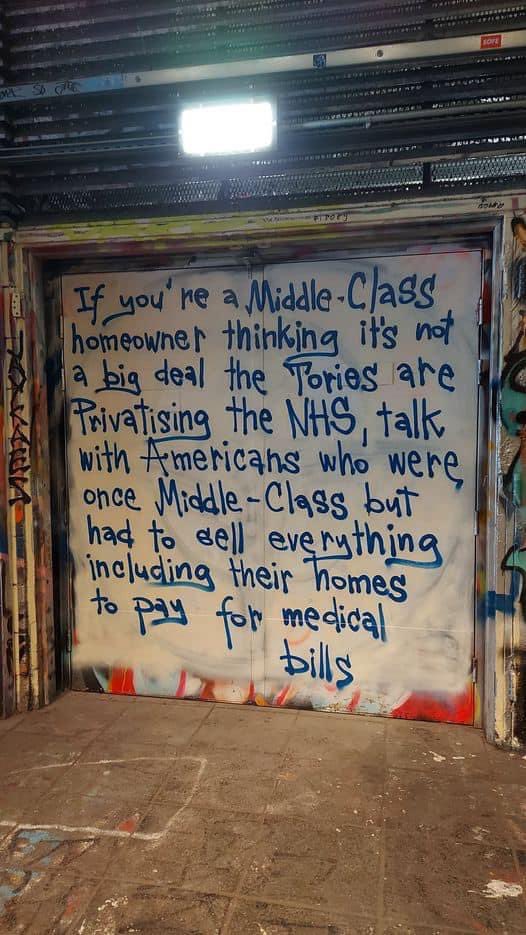 If you're a Middle-Class
homeowner thinking it's not
a big deal the Tories are
Privatising the NHS, talk
with Americans who were
once Middle-Class but
had to sell everything
including their homes
to pay for medical
bills